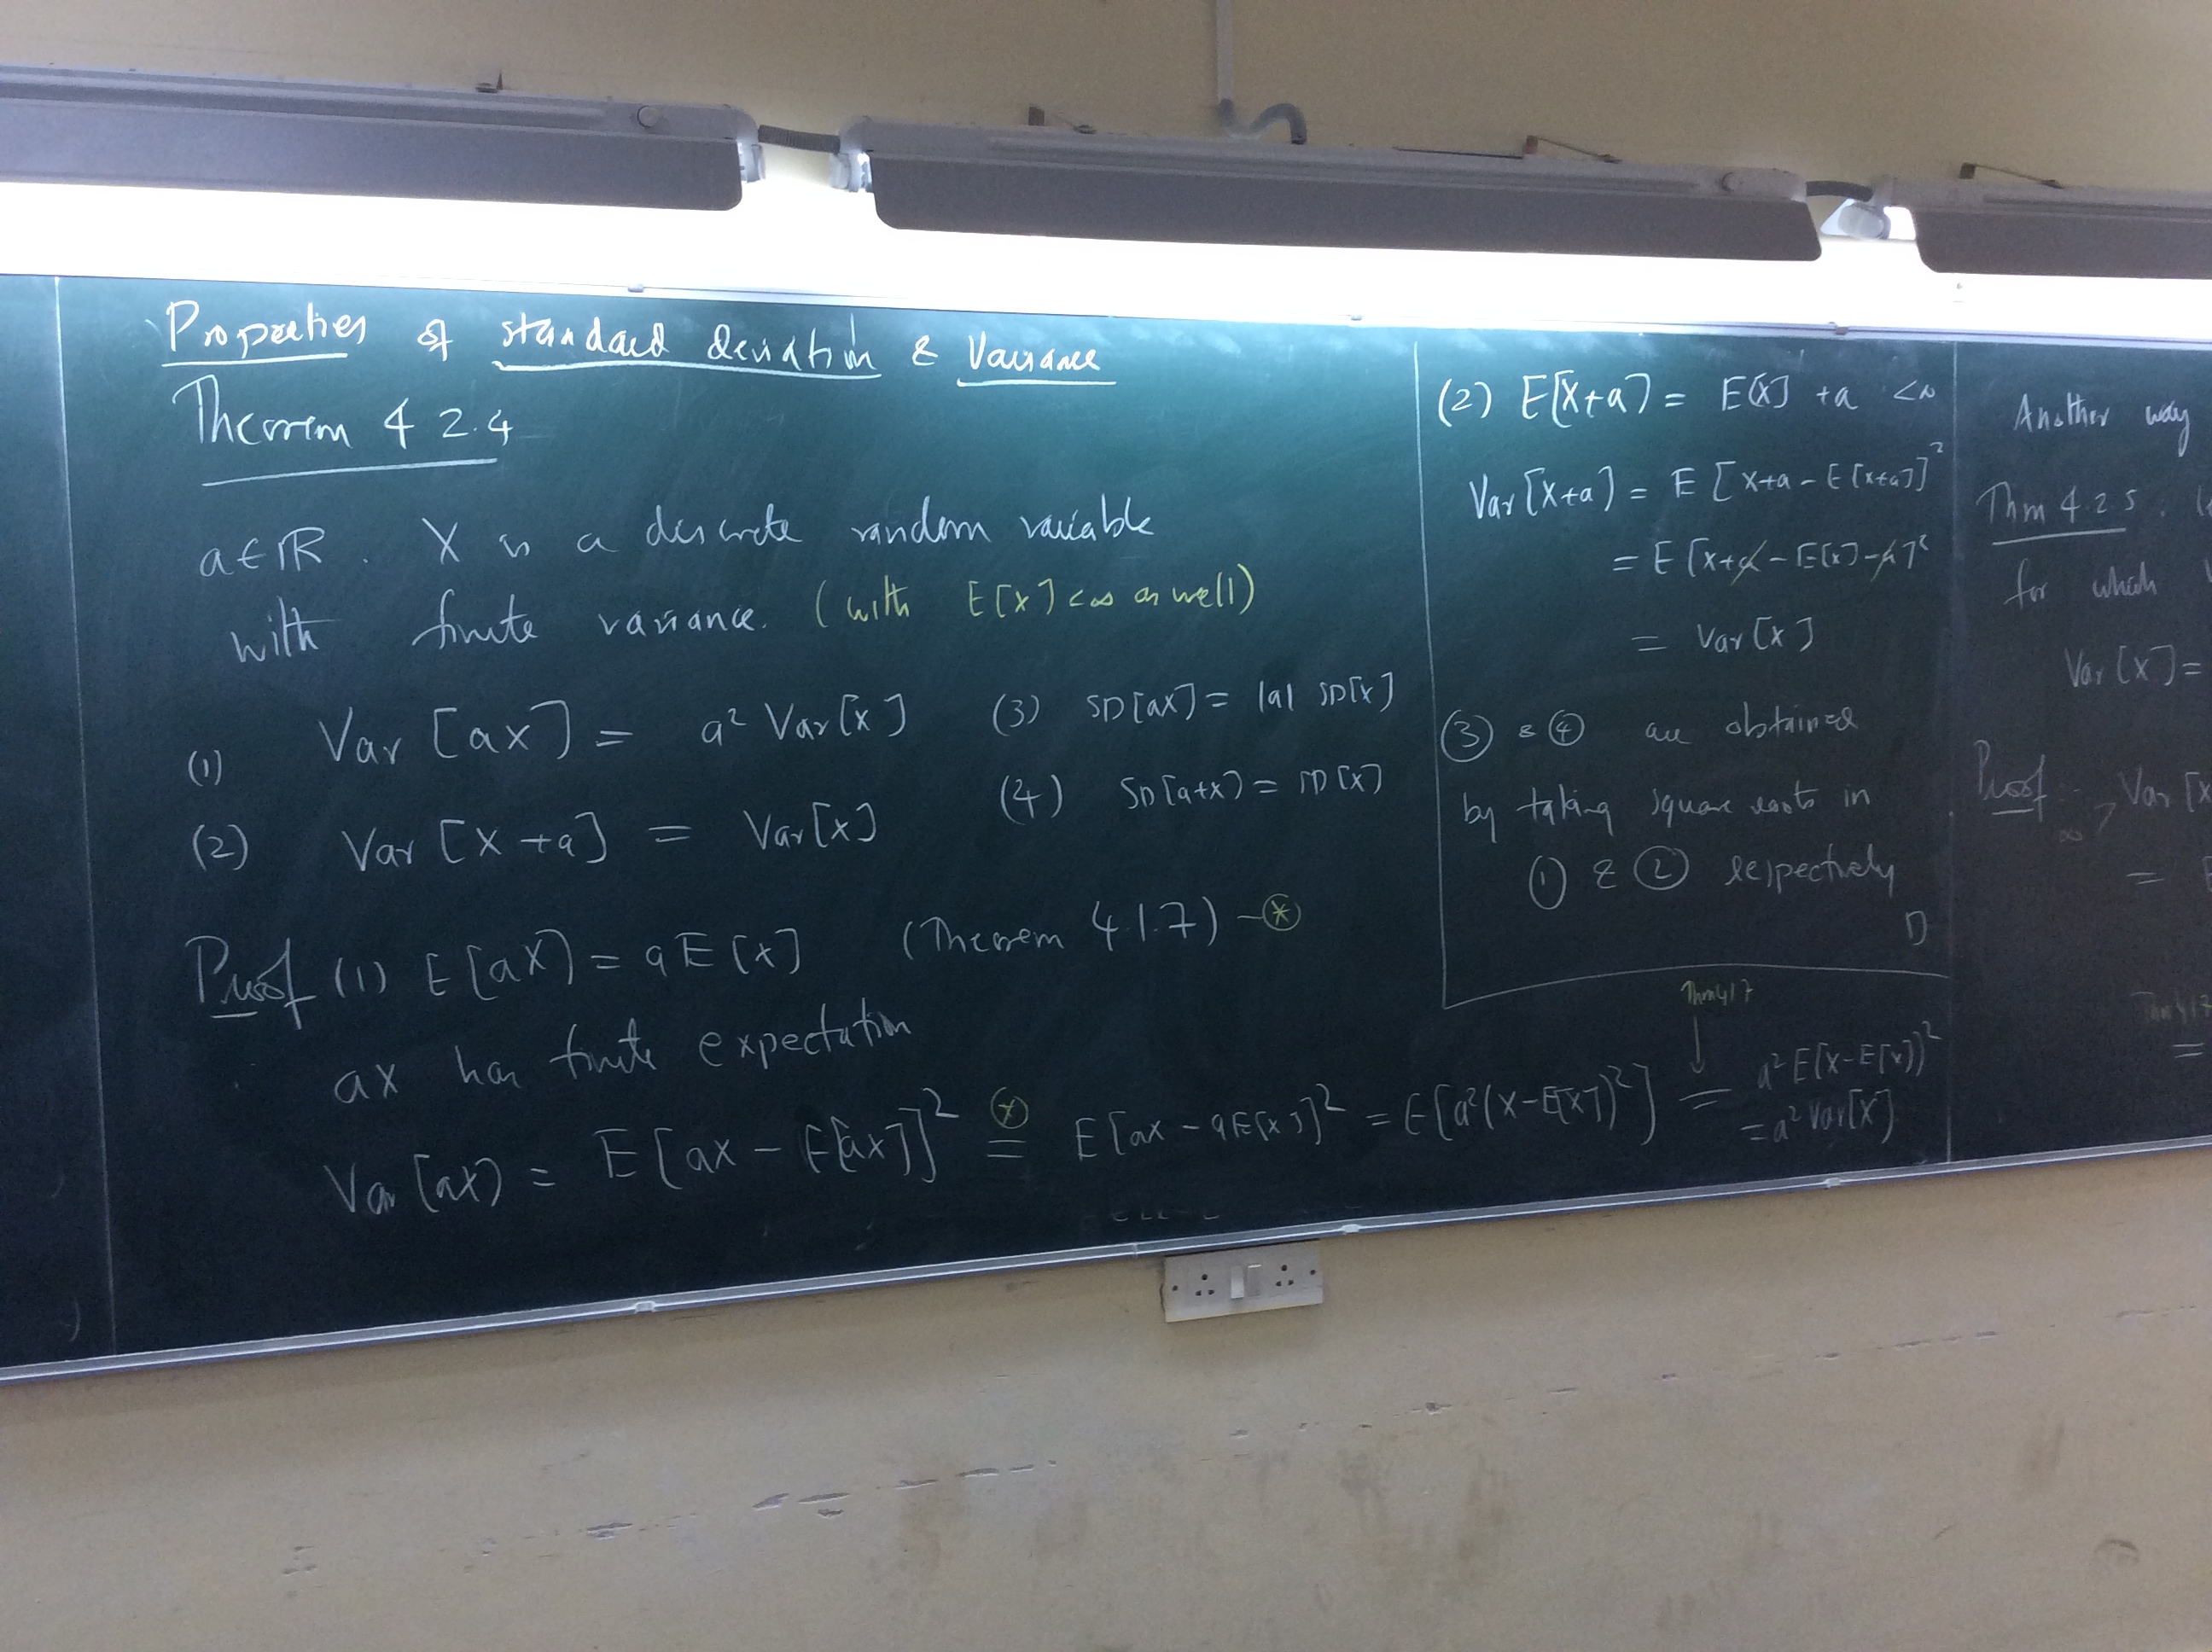 Properties of standard deviation & Variance
Theorem 4 2.4
a ∈ ℝ. X is a discrete random variable
with finite variance. (with E[X] < ∞ as well)
(1) Var [aX] = a² Var[X]
(2) Var [X + a] = Var[X]
(3) SD[aX] = |a| SD[X]
(4) SD[a+X] = SD[X]
Proof (1) E[aX] = a E[X] (Theorem 4.1.7) - ⊛
aX has finite expectation
Var[aX] = E[aX - E[aX]]² ⊛= E[aX - aE[X]]² = E[a²(X-E[X])²] = a² E[X-E[X]]²
= a² Var[X]
Thm 4 1 7
↓
(2) E[X+a] = E[X] + a < ∞
Var[X+a] = E[X+a - E[X+a]]²
= E[X+a - E[X] - a]²
= Var[X]
③ & ④ are obtained
by taking square roots in
① & ② respectively
□
Another way
Thm 4.2.5.
for which
Var[X] =
Proof : Var [X
=
Thm 4 1 7
=